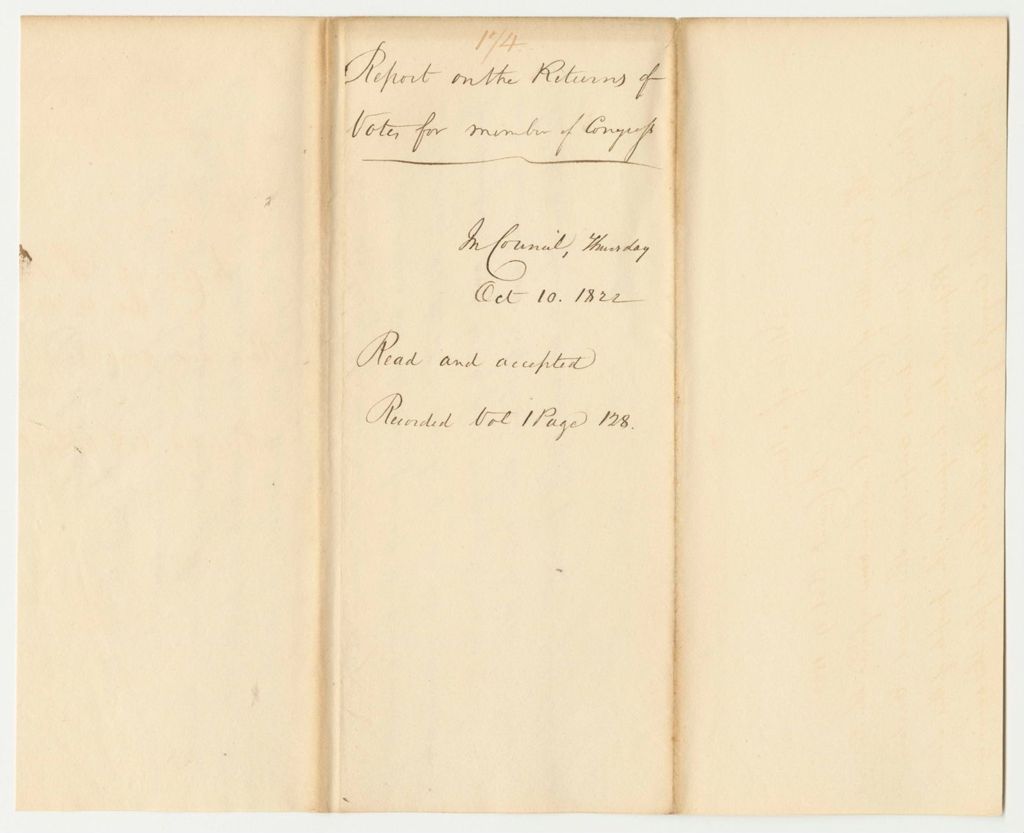 174.
Report on the Returns of
Votes for member of Congress
In Council, Thursday
Oct 10. 1822
Read and accepted
Recorded Vol 1 Page 128.